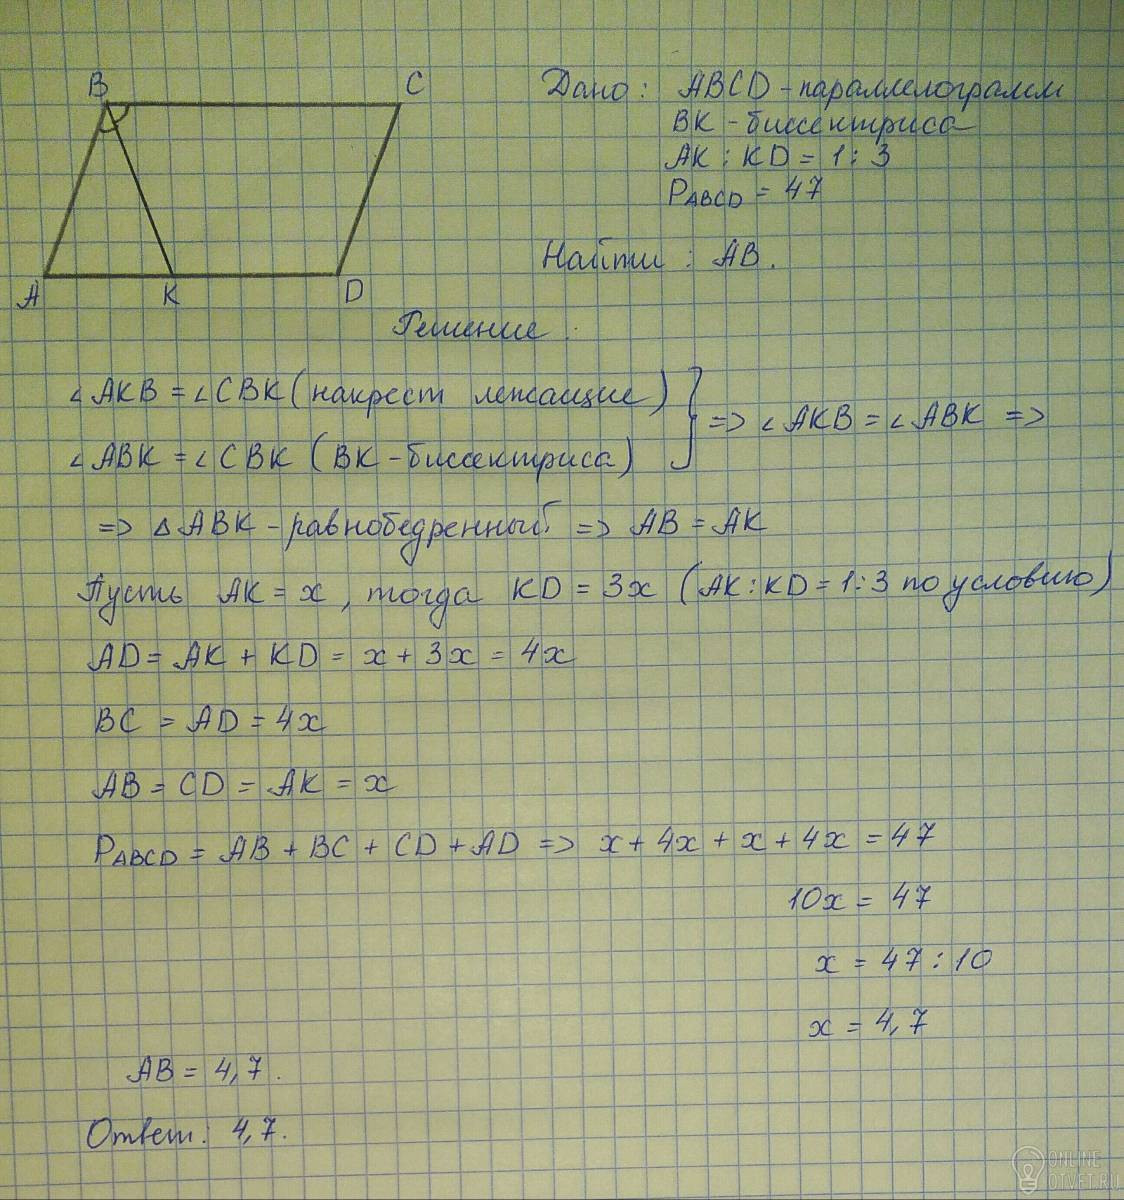 B C
A K D
Дано: ABCD - параллелограмм
BK - биссектриса
AK : KD = 1 : 3
P_ABCD = 47
Найти: AB.
Решение:
∠AKB = ∠CBK (накрест лежащие)
∠ABK = ∠CBK (BK - биссектриса)
} => ∠AKB = ∠ABK =>
=> △ABK - равнобедренный => AB = AK
Пусть AK = x, тогда KD = 3x (AK : KD = 1 : 3 по условию)
AD = AK + KD = x + 3x = 4x
BC = AD = 4x
AB = CD = AK = x
P_ABCD = AB + BC + CD + AD => x + 4x + x + 4x = 47
10x = 47
x = 47 : 10
x = 4,7
AB = 4,7.
Ответ: 4,7.
ONLINE
OTVET.RU